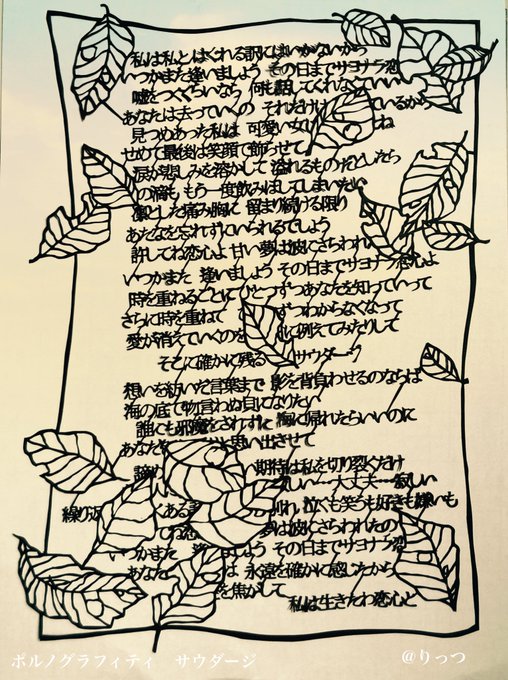 私は私とはぐれる訳にはいかないから
いつかまた逢いましょう その日までサヨナラ恋
嘘をつくぐらいなら 何も話してくれなくていい
あなたは去っていくの それだけは ているから
見つめあった私は 可愛い女 ね
せめて最後は笑顔で飾らせて
涙が悲しみを溶かして 溢れるものだとしたら
の滴も もう一度飲みほしてしまいたい
凛とした痛み胸に 留まり続ける限り
あなたを忘れずにいられるでしょう
許してね恋心よ 甘い夢は波にさらわれ
いつかまた 逢いましょう その日までサヨナラ恋心よ
時を重ねるごとに ひとつずつあなたを知っていって
さらに時を重ねて ずつわからなくなって
愛が消えていくのを に例えてみたりして
そこに確かに残る サウダージ
想いを紡いだ言葉まで 影を背負わせるのならば
海の底で物言わぬ貝になりたい
誰にも邪魔をされずに 海に帰れたらいいのに
あなたを 思い出させて
諦め い期待は私を切り裂くだけ
しい…大丈夫…寂しい
繰り返 くある 別れ 泣くも笑うも好きも嫌いも
てね恋 夢は波にさらわれたの
いつかまた ましょう その日までサヨナラ恋
あなた は 永遠を確かに感じたから
を焦がして
私は生きたわ恋心と
ポルノグラフィティ サウダージ
@りっつ